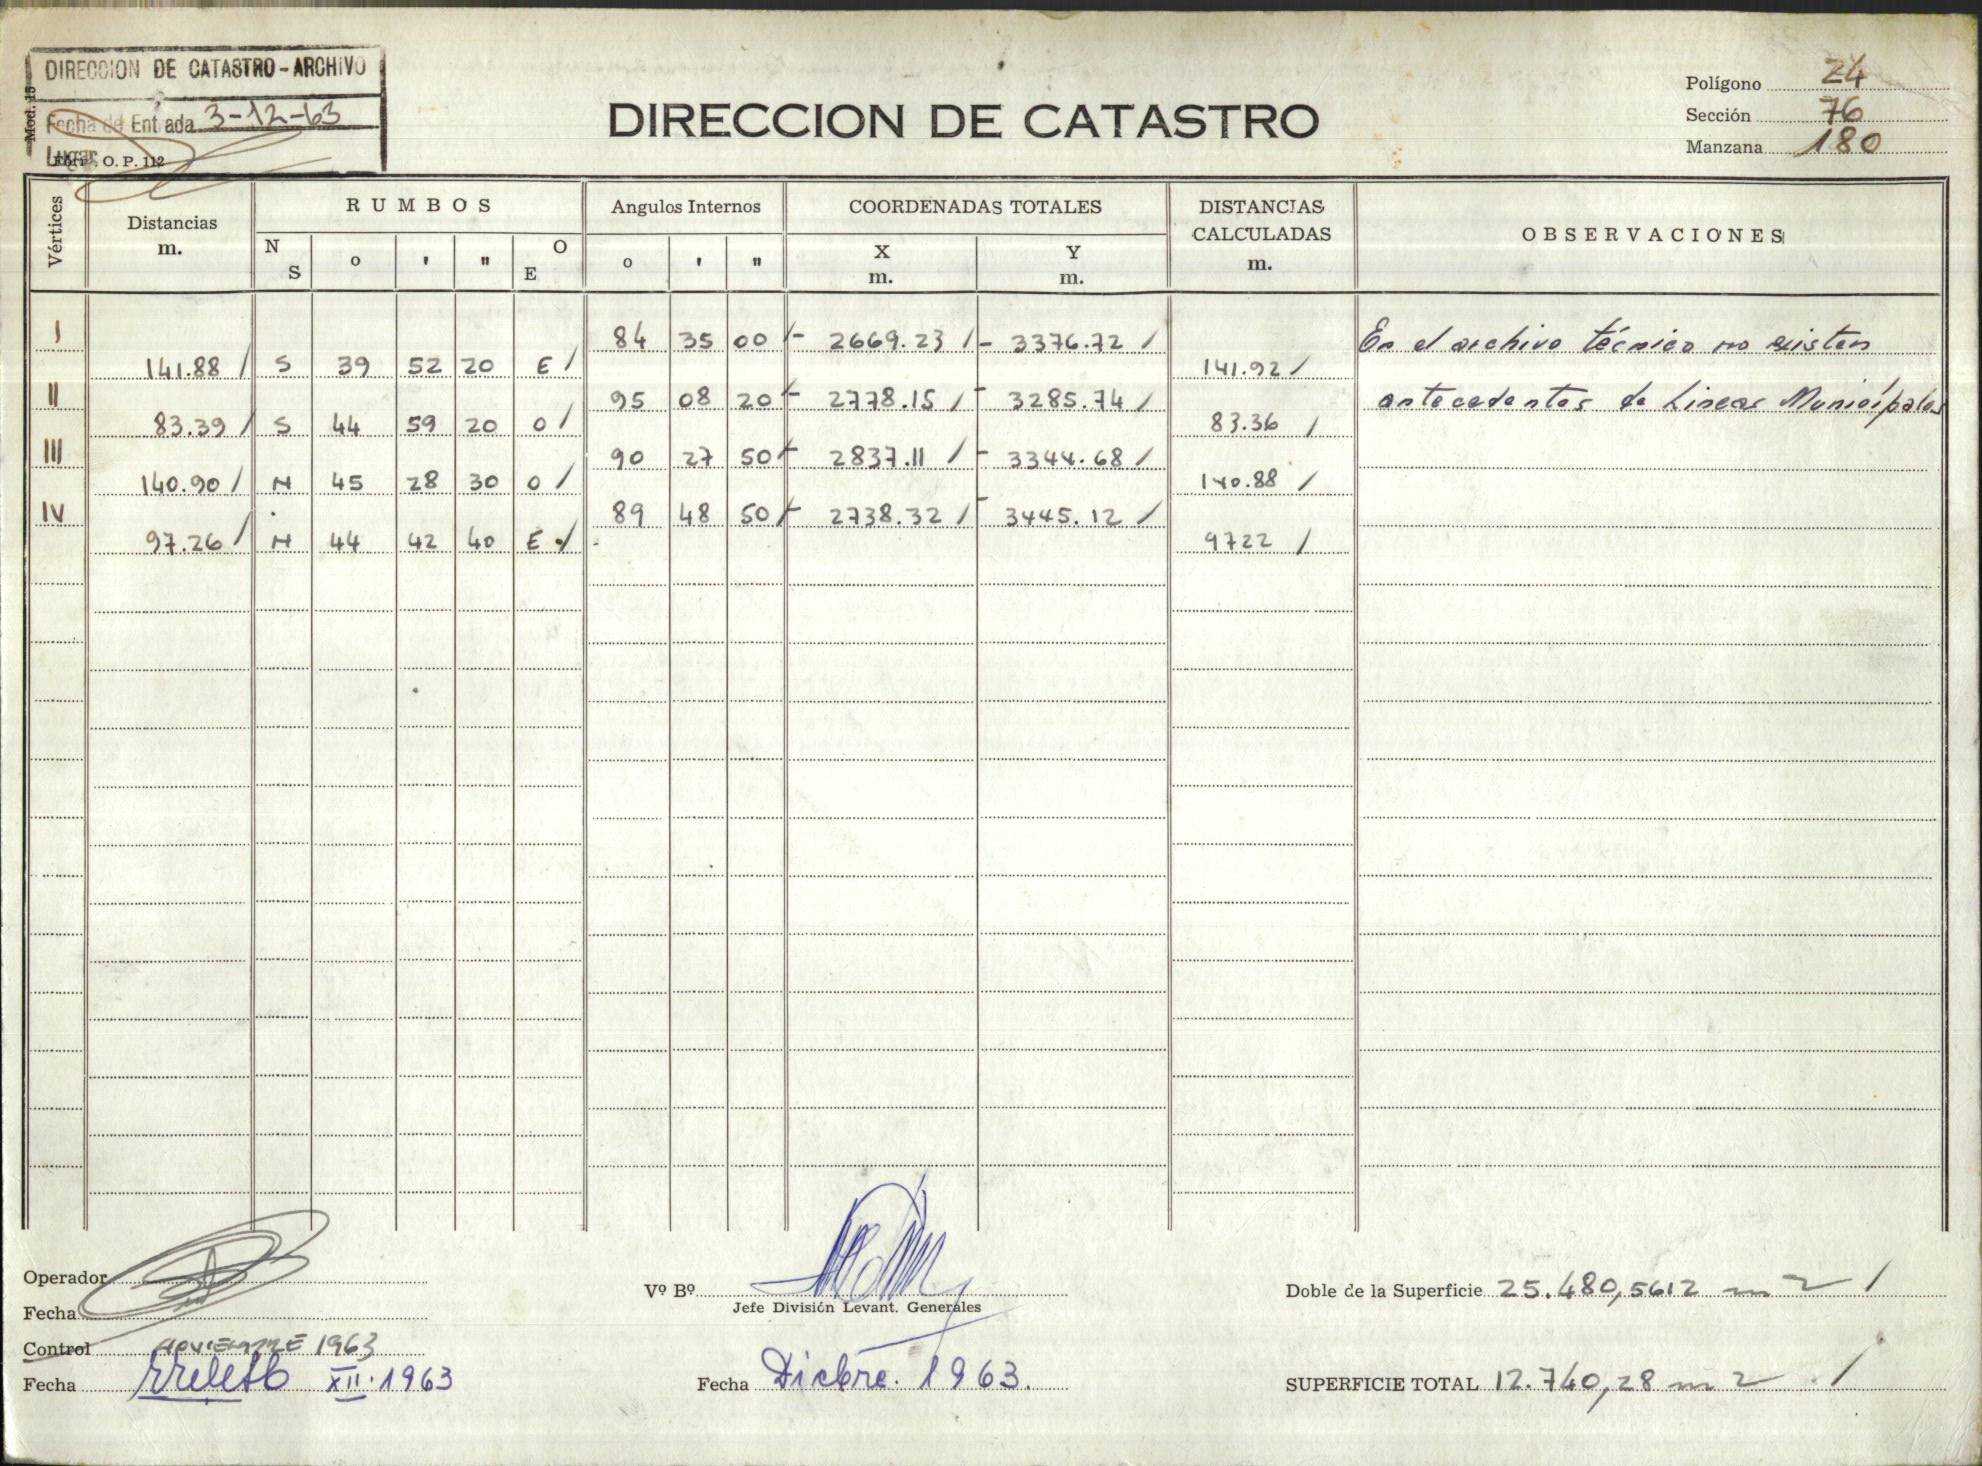 DIRECCION DE CATASTRO - ARCHIVO
Mod. 13
Fecha de Entrada 3-12-63
Lugar
Form. O. P. 112
DIRECCION DE CATASTRO
Polígono 24
Sección 76
Manzana 180
Vértices Distancias m. RUMBOS Angulos Internos COORDENADAS TOTALES DISTANCIAS CALCULADAS m. OBSERVACIONES
N S o ' " O E o ' " X m. Y m.
I 84 35 00 - 2669.23 - 3376.72 En el archivo técnico no existen
141.88 S 39 52 20 E 141.92
II 95 08 20 - 2778.15 - 3285.74 antecedentes de Lineas Municipales
83.39 S 44 59 20 O 83.36
III 90 27 50 - 2837.11 - 3344.68
140.90 N 45 28 30 O 140.88
IV 89 48 50 - 2738.32 - 3445.12
97.26 N 44 42 40 E 9722
Operador
Fecha
Control NOVIEMBRE 1963
Fecha XII.1963
Vº Bº
Jefe División Levant. Generales
Fecha Dicbre. 1963.
Doble de la Superficie 25.480,5612 m2
SUPERFICIE TOTAL 12.740,28 m2